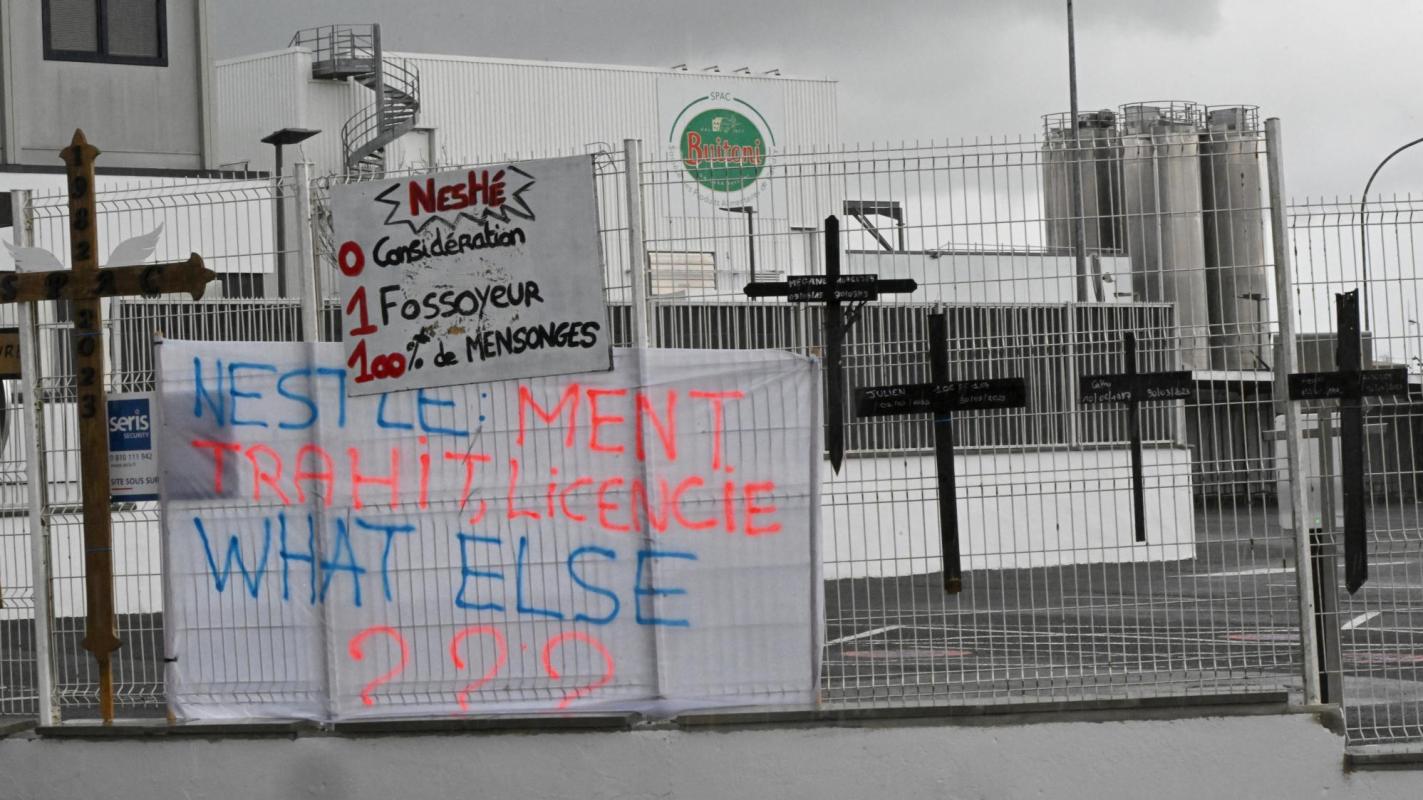 SPAC
Buitoni
Nestlé
0 Considération
1 Fossoyeur
100% de MENSONGES
NESTLE: MENT
TRAHiT, LiCENCiE
WHAT ELSE
???
1982 2023
SPAC
seris
SECURITY
0 810 111 942
SITE SOUS SUR
JULIEN
30/03/2023
30/03/2023